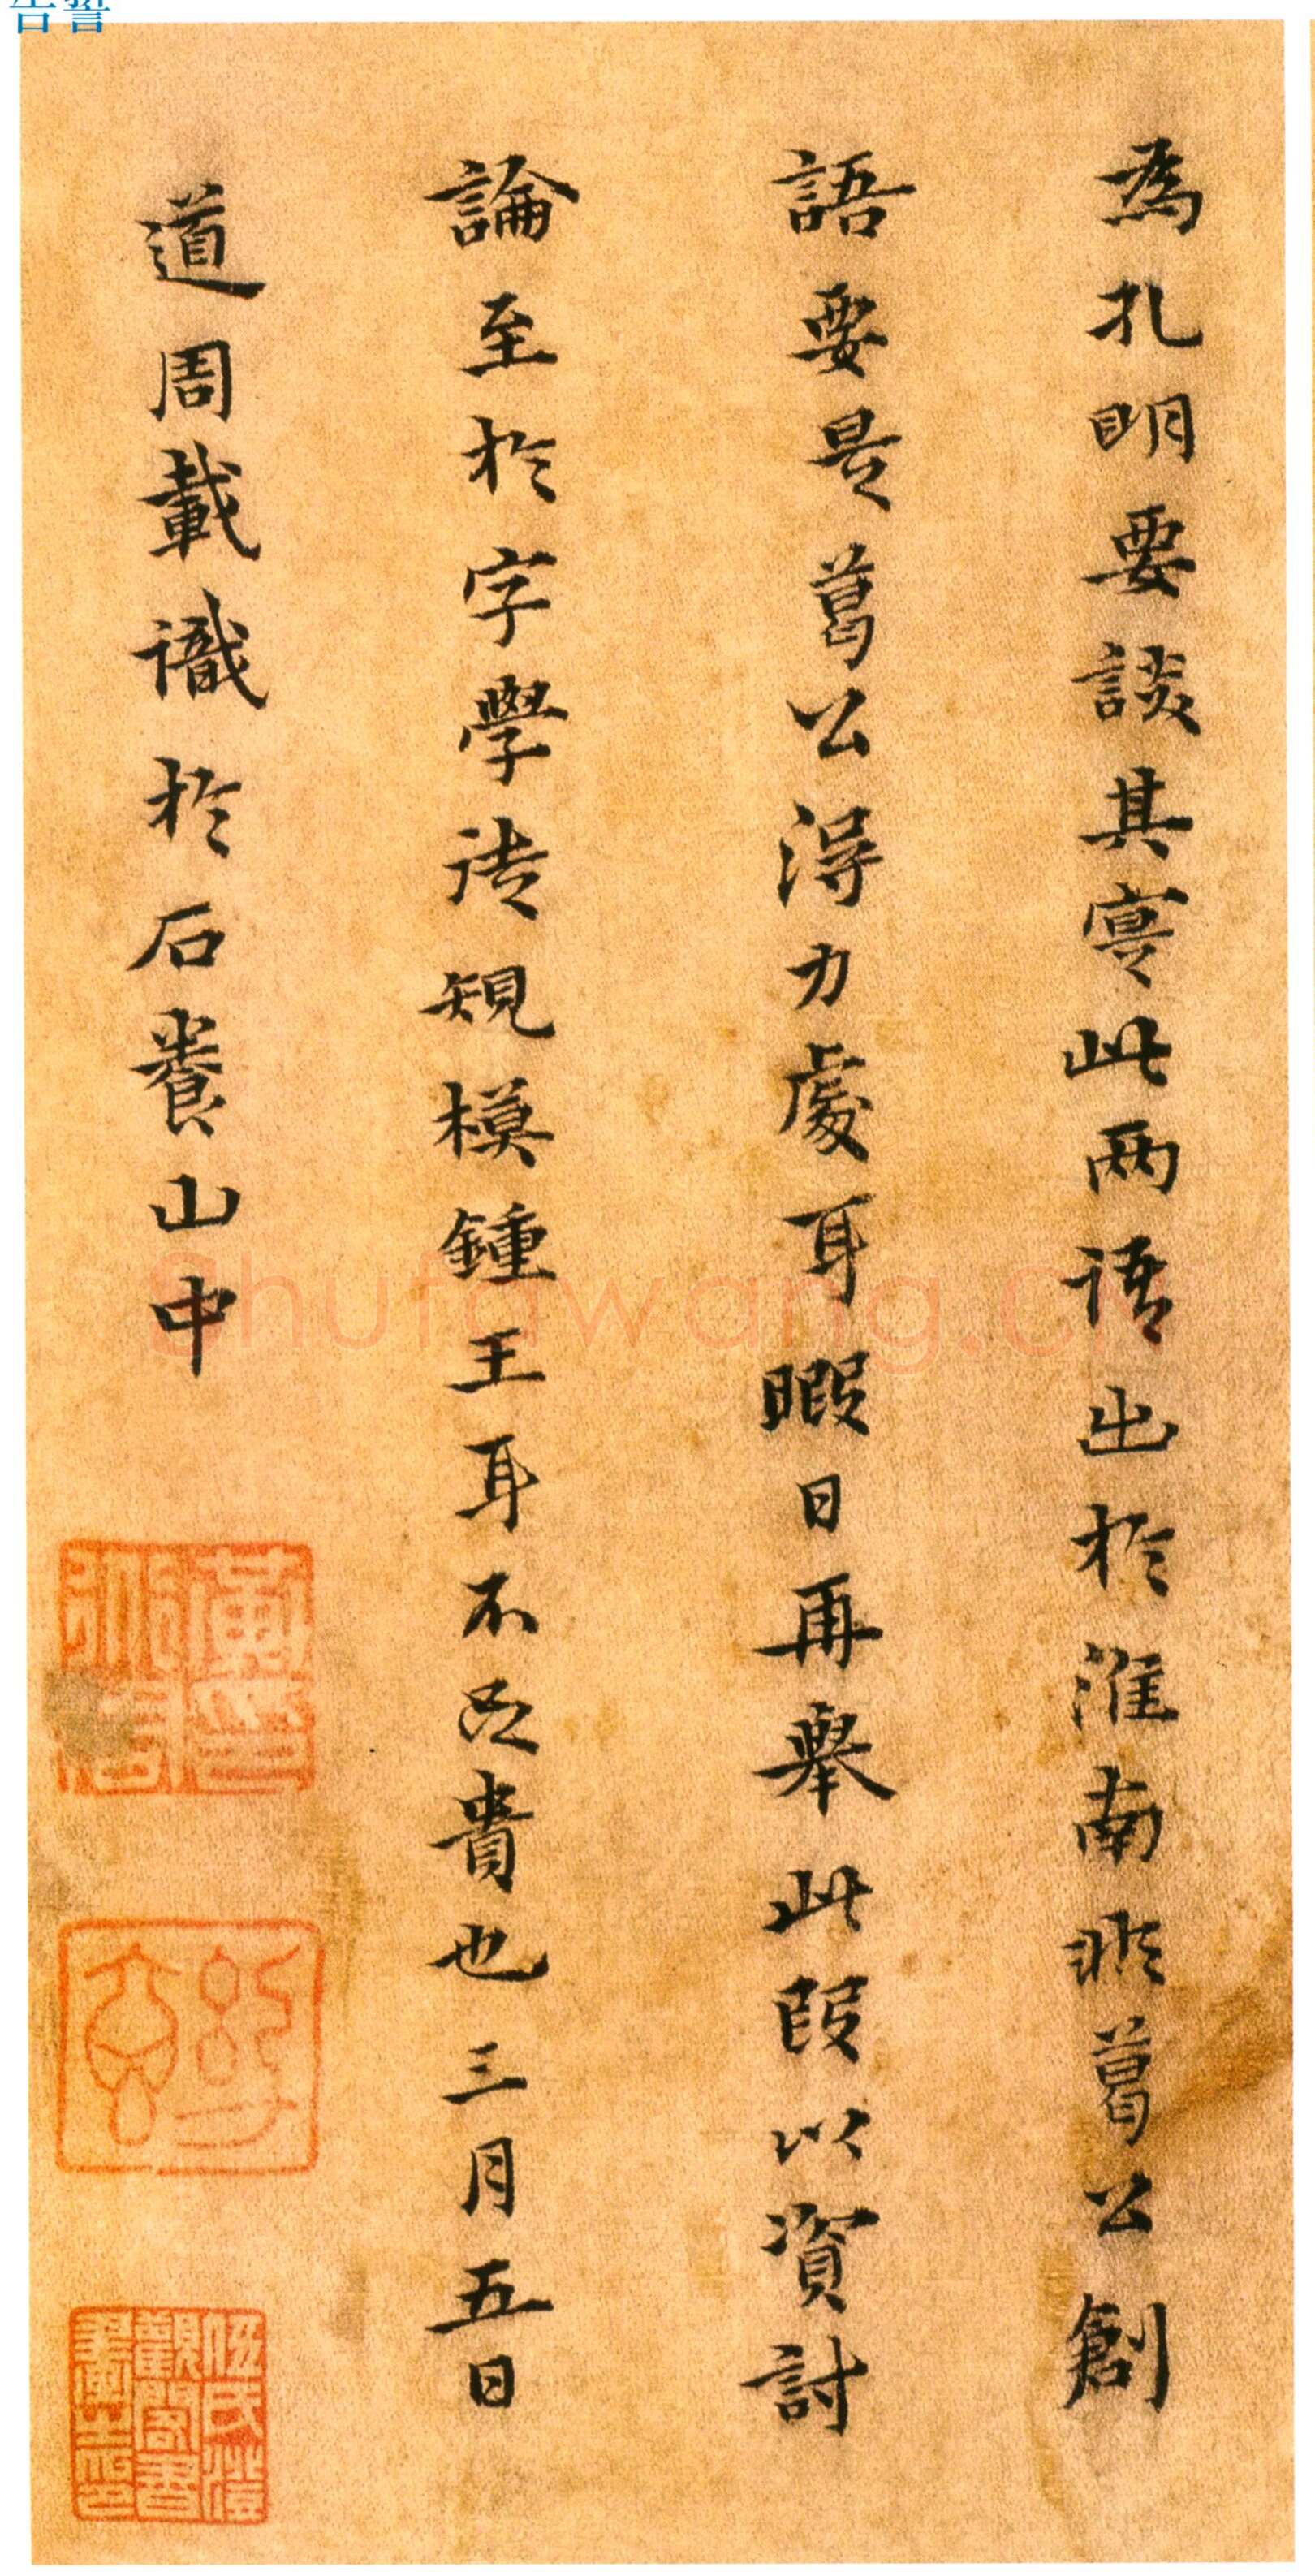 告誓
為孔明要談其實此两語出於淮南非葛公創
語要是葛公得力處耳暇日再舉此段以資討
論至於字學法規模鍾王耳不足貴也三月五日
道周載識於石養山中
伍氏澄觀閣書畫之印
Shufawang.cn